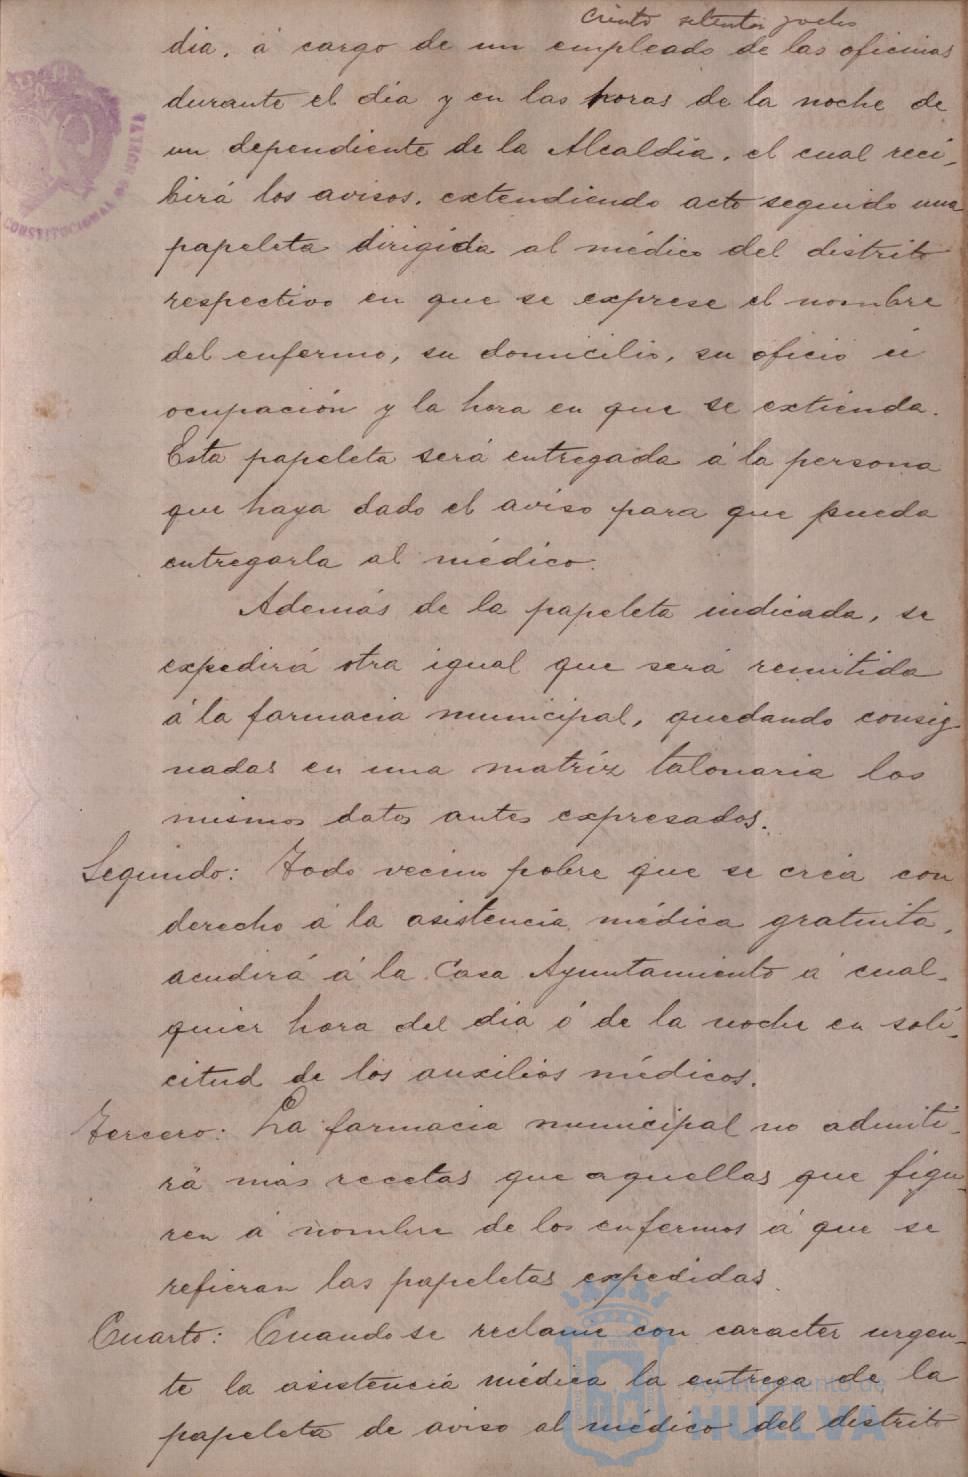 Ciento setenta y ocho
dia, á cargo de un empleado de las oficinas
durante el dia y en las horas de la noche de
un dependiente de la Alcaldía, el cual reci-
birá los avisos, extendiendo acto seguido una
papeleta dirigida al médico del distrito
respectivo en que se exprese el nombre
del enfermo, su domicilio, su oficio ú
ocupación y la hora en que se extienda.
Esta papeleta será entregada á la persona
que haya dado el aviso para que pueda
entregarla al médico.
Además de la papeleta indicada, se
expedirá otra igual que será remitida
á la farmacia municipal, quedando consig
nadas en una matriz talonaria los
mismos datos antes expresados.
Segundo: Todo vecino pobre que se crea con
derecho á la asistencia médica gratuita,
acudirá á la Casa Ayuntamiento á cual-
quier hora del dia ó de la noche en soli-
citud de los auxilios médicos.
Tercero: La farmacia municipal no admiti-
rá más recetas que aquellas que figu-
ren á nombre de los enfermos á que se
refieran las papeletas expedidas
Cuarto: Cuando se reclame con caracter urgen-
te la asistencia médica la entrega de la
papeleta de aviso al médico del distrito
CONSTITUCIONAL DE HUELVA
Ayuntamiento de
HUELVA